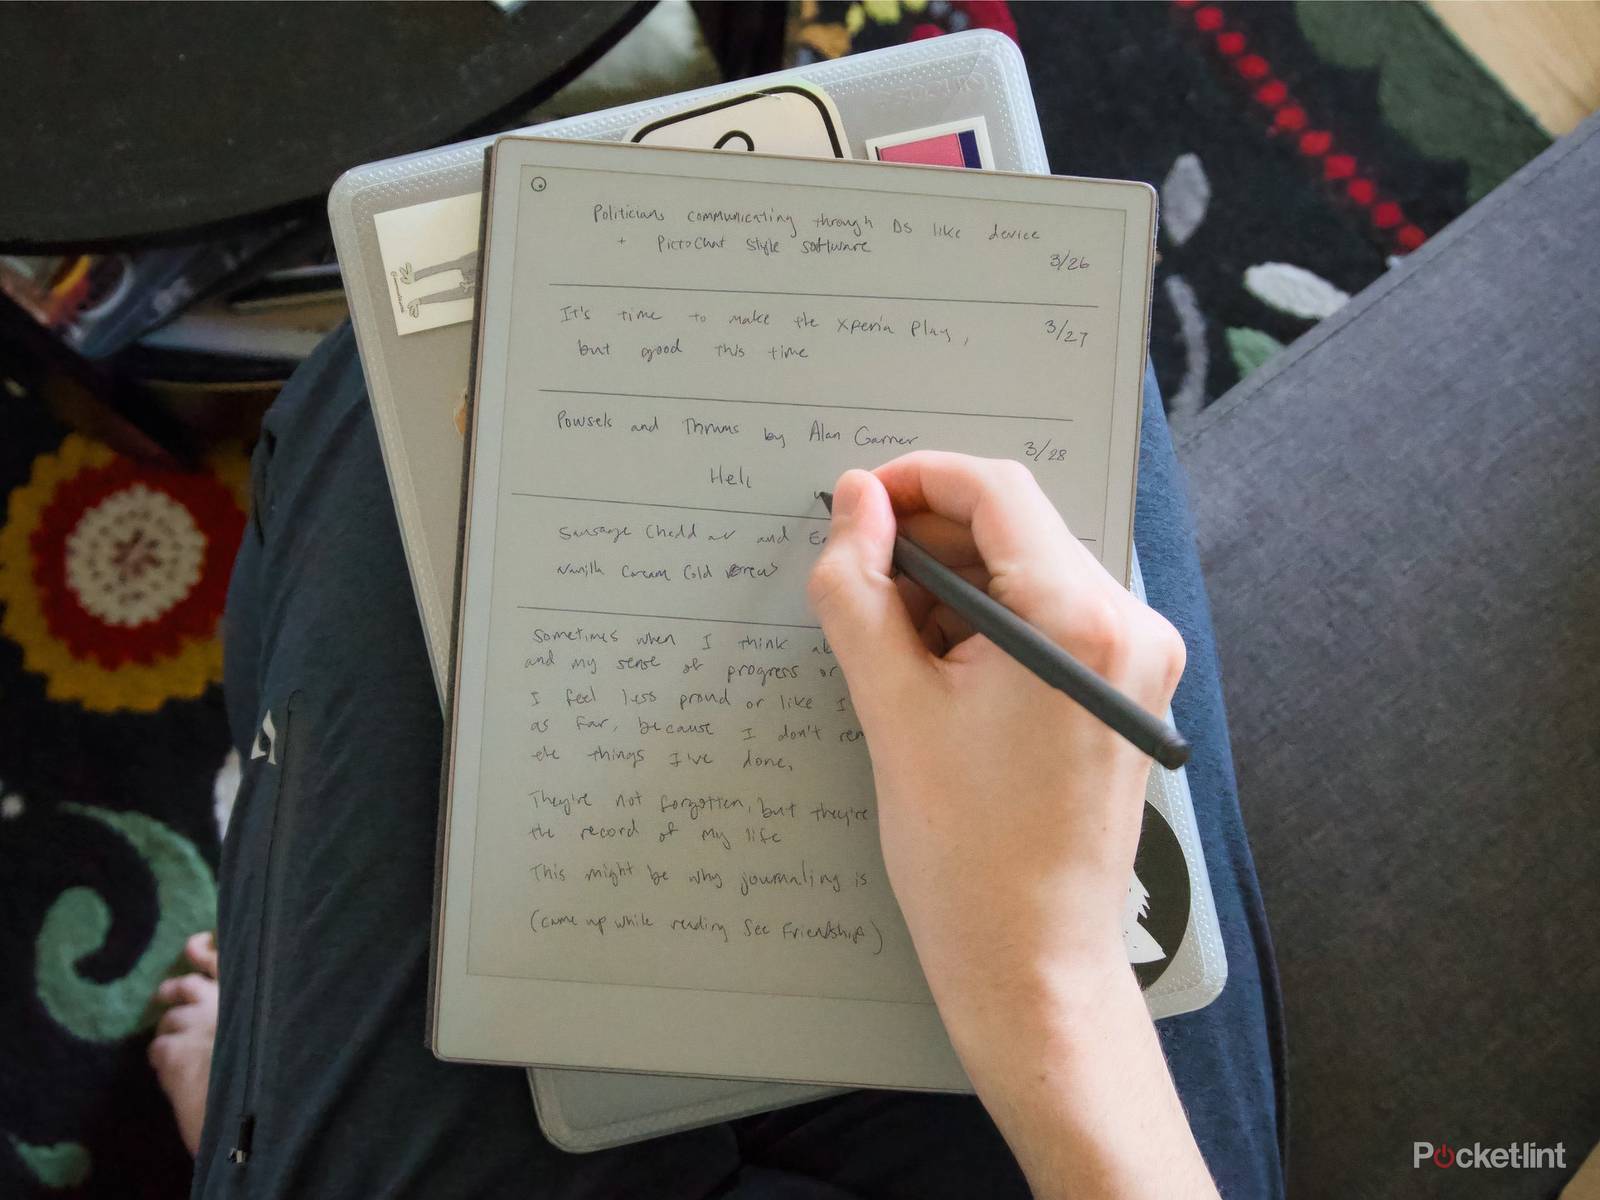 Politicians communicating through DS like device
+ PictoChat style software
3/26
It's time to make the Xperia Play,
3/27
but good this time
Powsels and Thrums by Alan Garner
3/28
Hell
Sausage Cheddar and
Vanilla Cream Cold Brew
Sometimes when I think
and my sense of progress or
I feel less proud or like I
as far, because I don't
the things I've done,
They're not forgotten, but they're
the record of my life
This might be why journaling is
(came up while reading See Friendship)
Pocket-lint